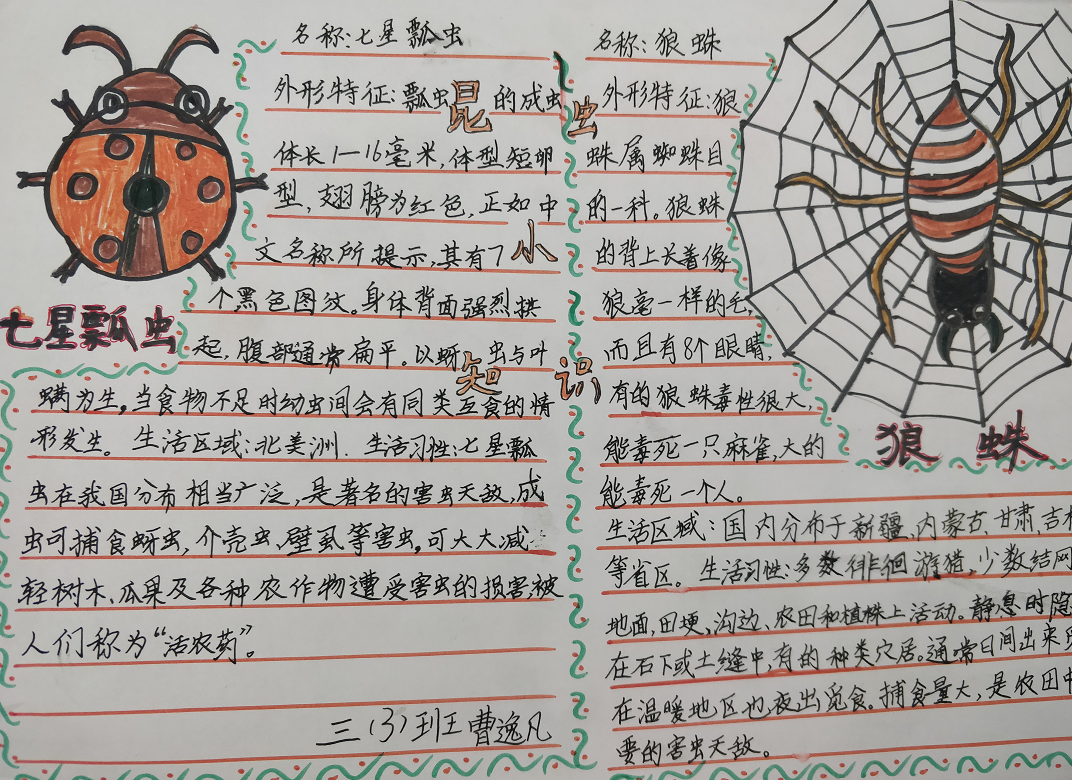 昆虫小知识
名称:七星瓢虫
外形特征:瓢虫的成虫
体长1—16毫米,体型短卵
型,翅膀为红色,正如中
文名称所提示,其有7
个黑色图纹。身体背面强烈拱
起,腹部通常扁平。以蚜虫与叶
螨为生。当食物不足时幼虫间会有同类互食的情
形发生。生活区域:北美洲.生活习性:七星瓢
虫在我国分布相当广泛,是著名的害虫天敌,成
虫可捕食蚜虫,介壳虫、壁虱等害虫,可大大减
轻树木、瓜果及各种农作物遭受害虫的损害,被
人们称为“活农药”。
三(3)班王曹逸凡
七星瓢虫
名称:狼蛛
外形特征:狼
蛛属蜘蛛目
的一科。狼蛛
的背上长着像
狼毫一样的毛,
而且有8个眼睛,
有的狼蛛毒性很大,
能毒死一只麻雀,大的
能毒死一个人。
生活区域:国内分布于新疆、内蒙古、甘肃、吉林
等省区。生活习性:多数徘徊游猎,少数结网
地面,田埂、沟边、农田和植株上活动。静息时隐
在石下或土缝中,有的种类穴居。通常日间出来
在温暖地区也夜出觅食。捕食量大,是农田中
要的害虫天敌。
狼蛛